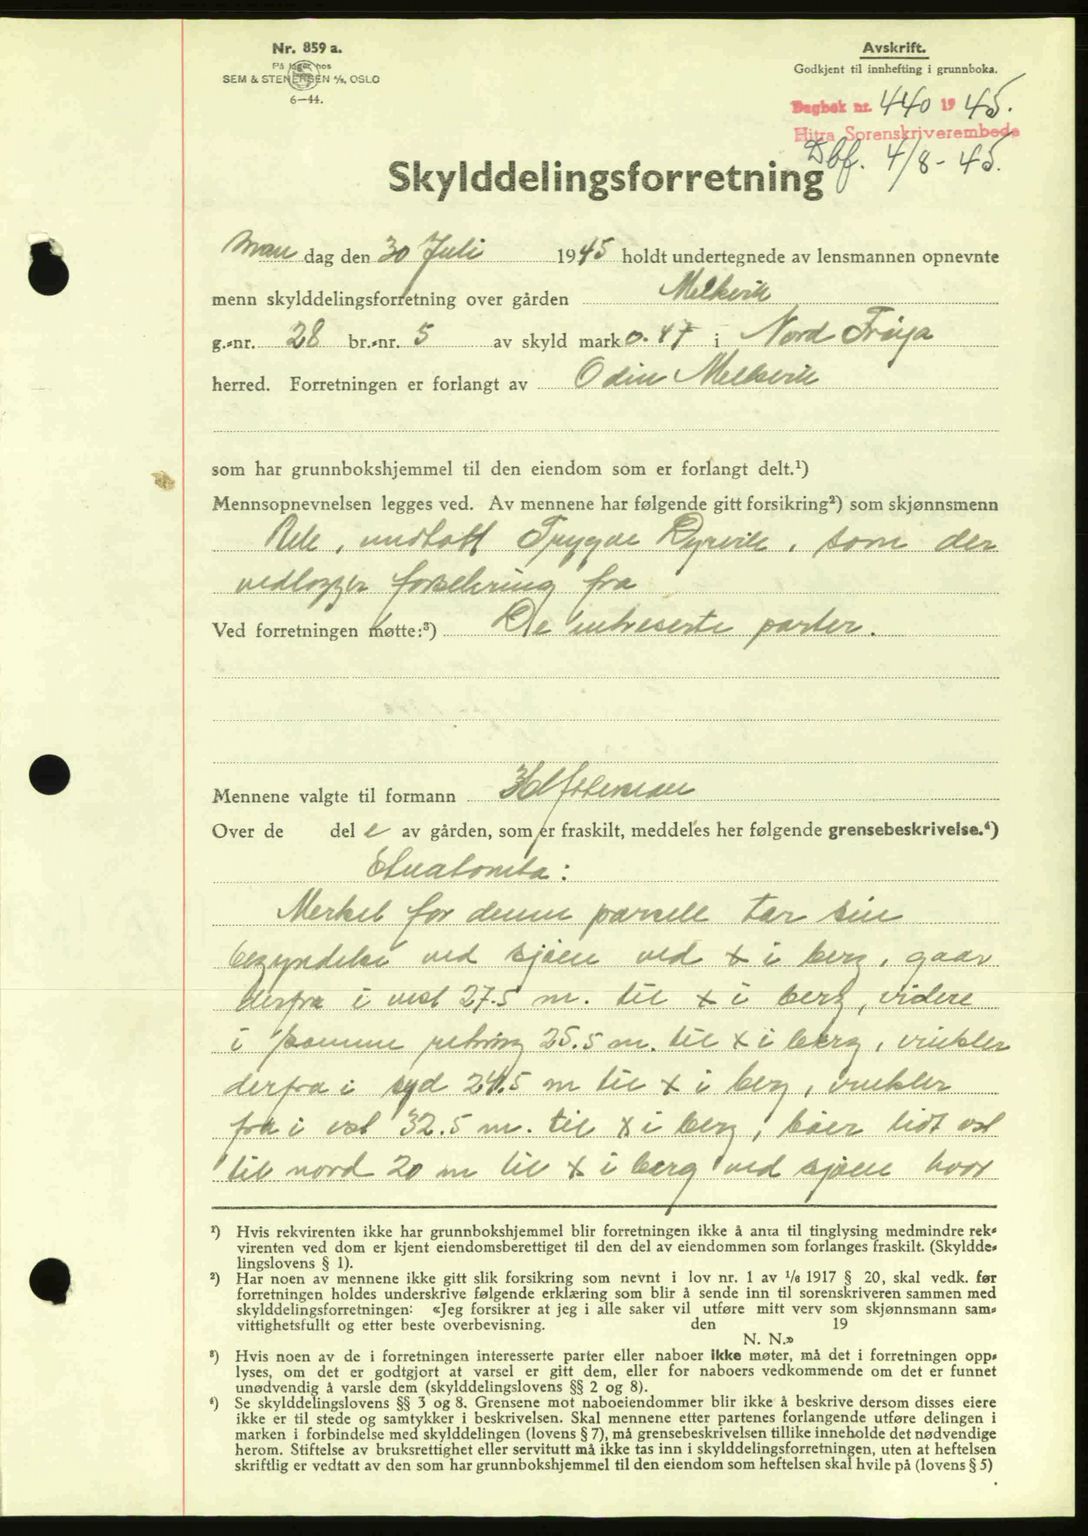 Nr. 859 a.
På lager hos
SEM & STENERSEN A/S, OSLO
6—44.
Avskrift.
Godkjent til innhefting i grunnboka.
Dagbok nr. 440 1945.
Hitra Sorenskriverembede
Dbf. 4/8-45.
Skylddelingsforretning
Man dag den 30 Juli 1945 holdt undertegnede av lensmannen opnevnte
menn skylddelingsforretning over gården Melkvik
g.-nr. 28 br.-nr. 5 av skyld mark 0.47 i Nord Frøya
herred. Forretningen er forlangt av Odin Melkvik
som har grunnbokshjemmel til den eiendom som er forlangt delt.¹)
Mennsopnevnelsen legges ved. Av mennene har følgende gitt forsikring²) som skjønnsmenn
Trygve Dyrvik, som der
vedlegger forsekring fra
Ved forretningen møtte:³) De intreserte parter.
Mennene valgte til formann
Over de del e av gården, som er fraskilt, meddeles her følgende grensebeskrivelse.⁴)
Merket for denne parsell tar sin
begyndelse ved sjøen ved x i berg, gaar
derfra i vest 27.5 m. til x i berg, videre
i samme retning 25.5 m. til x i berg, vinkler
derfra i syd 24.5 m til x i berg, vinkler
fra i vest 32.5 m. til x i berg, bøier lidt vest
til nord 20 m til x i berg ved sjøen hvor
¹) Hvis rekvirenten ikke har grunnbokshjemmel blir forretningen ikke å anta til tinglysing medmindre rek-
virenten ved dom er kjent eiendomsberettiget til den del av eiendommen som forlanges fraskilt. (Skyldde-
lingslovens § 1).
²) Har noen av mennene ikke gitt slik forsikring som nevnt i lov nr. 1 av 1/6 1917 § 20, skal vedk. før
forretningen holdes underskrive følgende erklæring som blir å sende inn til sorenskriveren sammen med
skylddelingsforretningen: «Jeg forsikrer at jeg i alle saker vil utføre mitt verv som skjønnsmann sam-
vittighetsfullt og etter beste overbevisning. den 19
N. N.»
³) Hvis noen av de i forretningen interesserte parter eller naboer ikke møter, må det i forretningen opp-
lyses, om det er godtgjort at varsel er gitt dem, eller for naboers vedkommende om det er funnet
unødvendig å varsle dem (skylddelingslovens §§ 2 og 8).
⁴) Se skylddelingslovens §§ 3 og 8. Grensene mot naboeiendommer blir ikke å beskrive dersom disses eiere
ikke er til stede og samtykker i beskrivelsen. Skal mennene etter partenes forlangende utføre delingen i
marken i forbindelse med skylddelingen (lovens § 7), må grensebeskrivelsen tillike inneholde det nødvendige
herom. Stiftelse av bruksrettighet eller servitutt må ikke tas inn i skylddelingsforretningen, uten at heftelsen
skriftlig er vedtatt av den som har grunnbokshjemmel til den eiendom som heftelsen skal hvile på (lovens § 5)